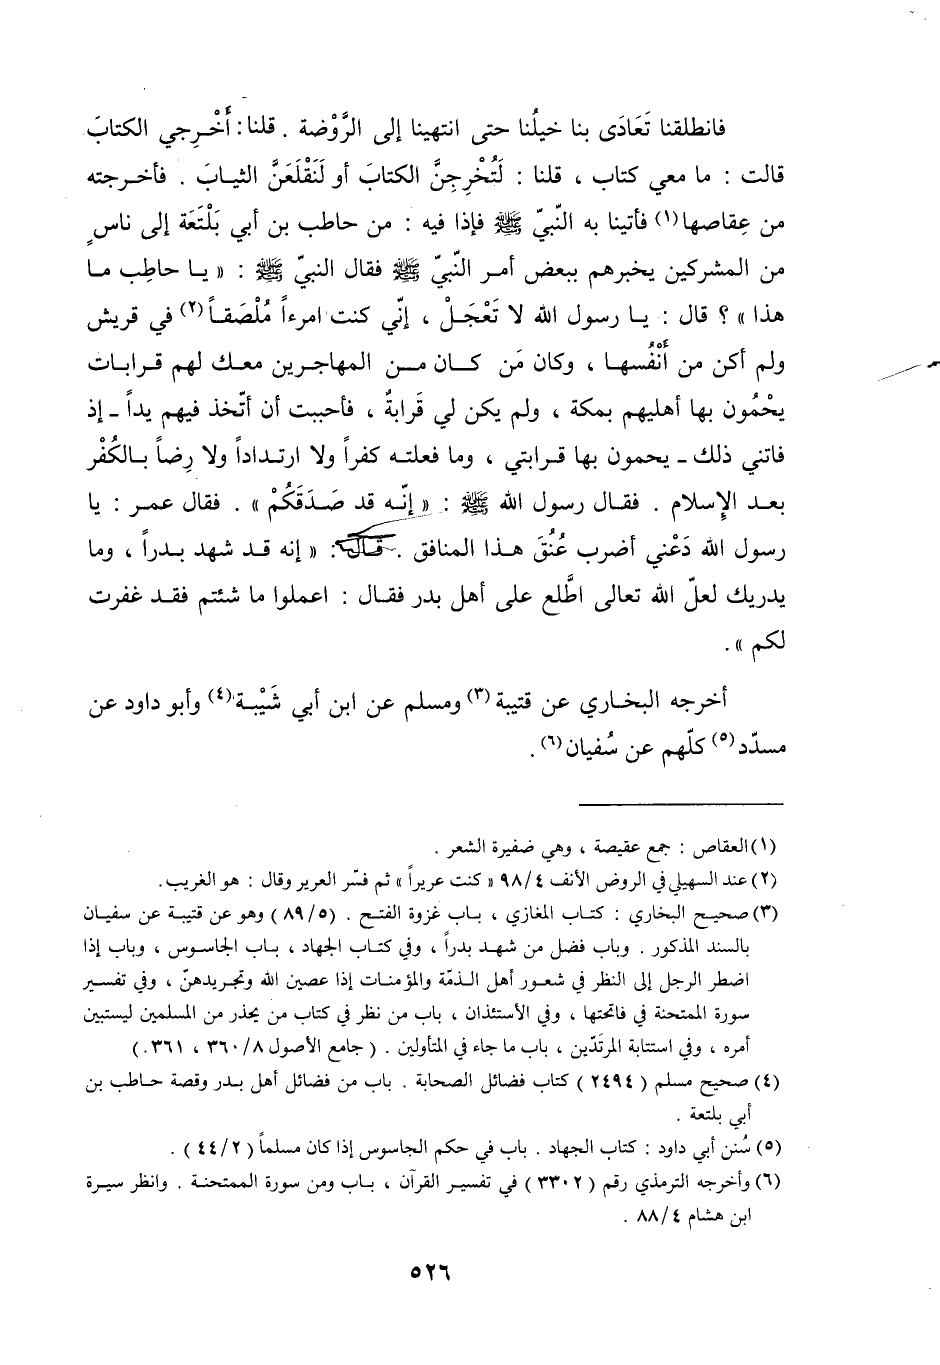 فانطلقنا تَعَادَى بنا خيلُنا حتى انتهينا إلى الرَّوْضة . قلنا : أَخْرِجي الكتابَ
قالت : ما معي كتاب ، قلنا : لَتُخْرِجِنَّ الكتابَ أو لَنَقْلَعَنَّ الثيابَ . فأخرجته
من عِقاصها(١) فأتينا به النّبيّ ﷺ فإذا فيه : من حاطب بن أبي بَلْتَعَة إلى ناسٍ
من المشركين يخبرهم ببعض أمر النّبيّ ﷺ فقال النبيّ ﷺ : « يا حاطِب ما
هذا » ؟ قال : يا رسول الله لا تَعْجَلْ ، إنّي كنت امرءاً مُلْصَقاً(٢) في قريش
ولم أكن من أَنْفُسها ، وكان مَن كان من المهاجرين معك لهم قرابات
يحْمُون بها أهليهم بمكة ، ولم يكن لي قَرابةٌ ، فأحببت أن أتّخذ فيهم يداً ـ إذ
فاتني ذلك ـ يحمون بها قرابتي ، وما فعلته كفراً ولا ارتداداً ولا رِضاً بالكُفْر
بعد الإسلام . فقال رسول الله ﷺ : « إنّه قد صَدَقَكُمْ » . فقال عمر : يا
رسول الله دَعْني أضرب عُنُقَ هذا المنافق . قال : « إنه قد شهد بدراً ، وما
يدريك لعلّ الله تعالى اطَّلع على أهل بدر فقال : اعملوا ما شئتم فقد غفرت
لكم » .
أخرجه البخاري عن قتيبة(٣) ومسلم عن ابن أبي شَيْبة(٤) وأبو داود عن
مسدّد(٥) كلّهم عن سُفيان(٦) .
(١) العقاص : جمع عقيصة ، وهي ضفيرة الشعر .
(٢) عند السهيلي في الروض الأنف ٩٨/٤ « كنت عريراً » ثم فسّر العرير وقال : هو الغريب.
(٣) صحيح البخاري : كتاب المغازي ، باب غزوة الفتح . (٨٩/٥) وهو عن قتيبة عن سفيان
بالسند المذكور . وباب فضل من شهد بدراً ، وفي كتاب الجهاد ، باب الجاسوس ، وباب إذا
اضطر الرجل إلى النظر في شعور أهل الذمّة والمؤمنات إذا عصين الله وتجريدهنّ ، وفي تفسير
سورة الممتحنة في فاتحتها ، وفي الأستئذان ، باب من نظر في كتاب من يحذر من المسلمين ليستبين
أمره ، وفي استتابة المرتَدّين ، باب ما جاء في المتأولين . ( جامع الأصول ٣٦٠/٨ ، ٣٦١.)
(٤) صحيح مسلم ( ٢٤٩٤ ) كتاب فضائل الصحابة . باب من فضائل أهل بدر وقصة حاطب بن
أبي بلتعة .
(٥) سُنن أبي داود : كتاب الجهاد . باب في حكم الجاسوس إذا كان مسلماً ( ٤٤/٢ ) .
(٦) وأخرجه الترمذي رقم ( ٣٣٠٢ ) في تفسير القرآن ، باب ومن سورة الممتحنة . وانظر سيرة
ابن هشام ٨٨/٤ .
٥٢٦